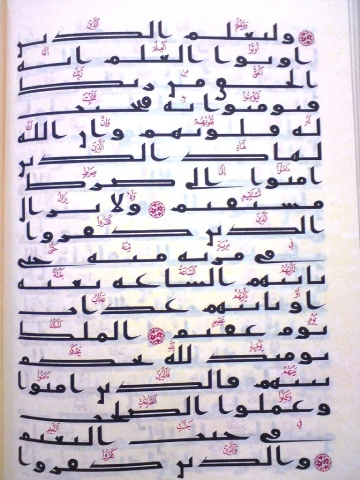 وليعلم الذين
اوتوا العلم انه
الحق من ربك
فيومنوا به فتخبت
له قلوبهم وان الله
لهاد الذين
امنوا الى صرط
مستقيم ولا يزال
الذين كفروا
في مرية منه حتى
تاتيهم الساعة بغتة
او ياتيهم عذاب
يوم عقيم الملك
يومئذ لله يحكم
بينهم فالذين امنوا
وعملوا الصلحت
في جنت النعيم
والذين كفروا